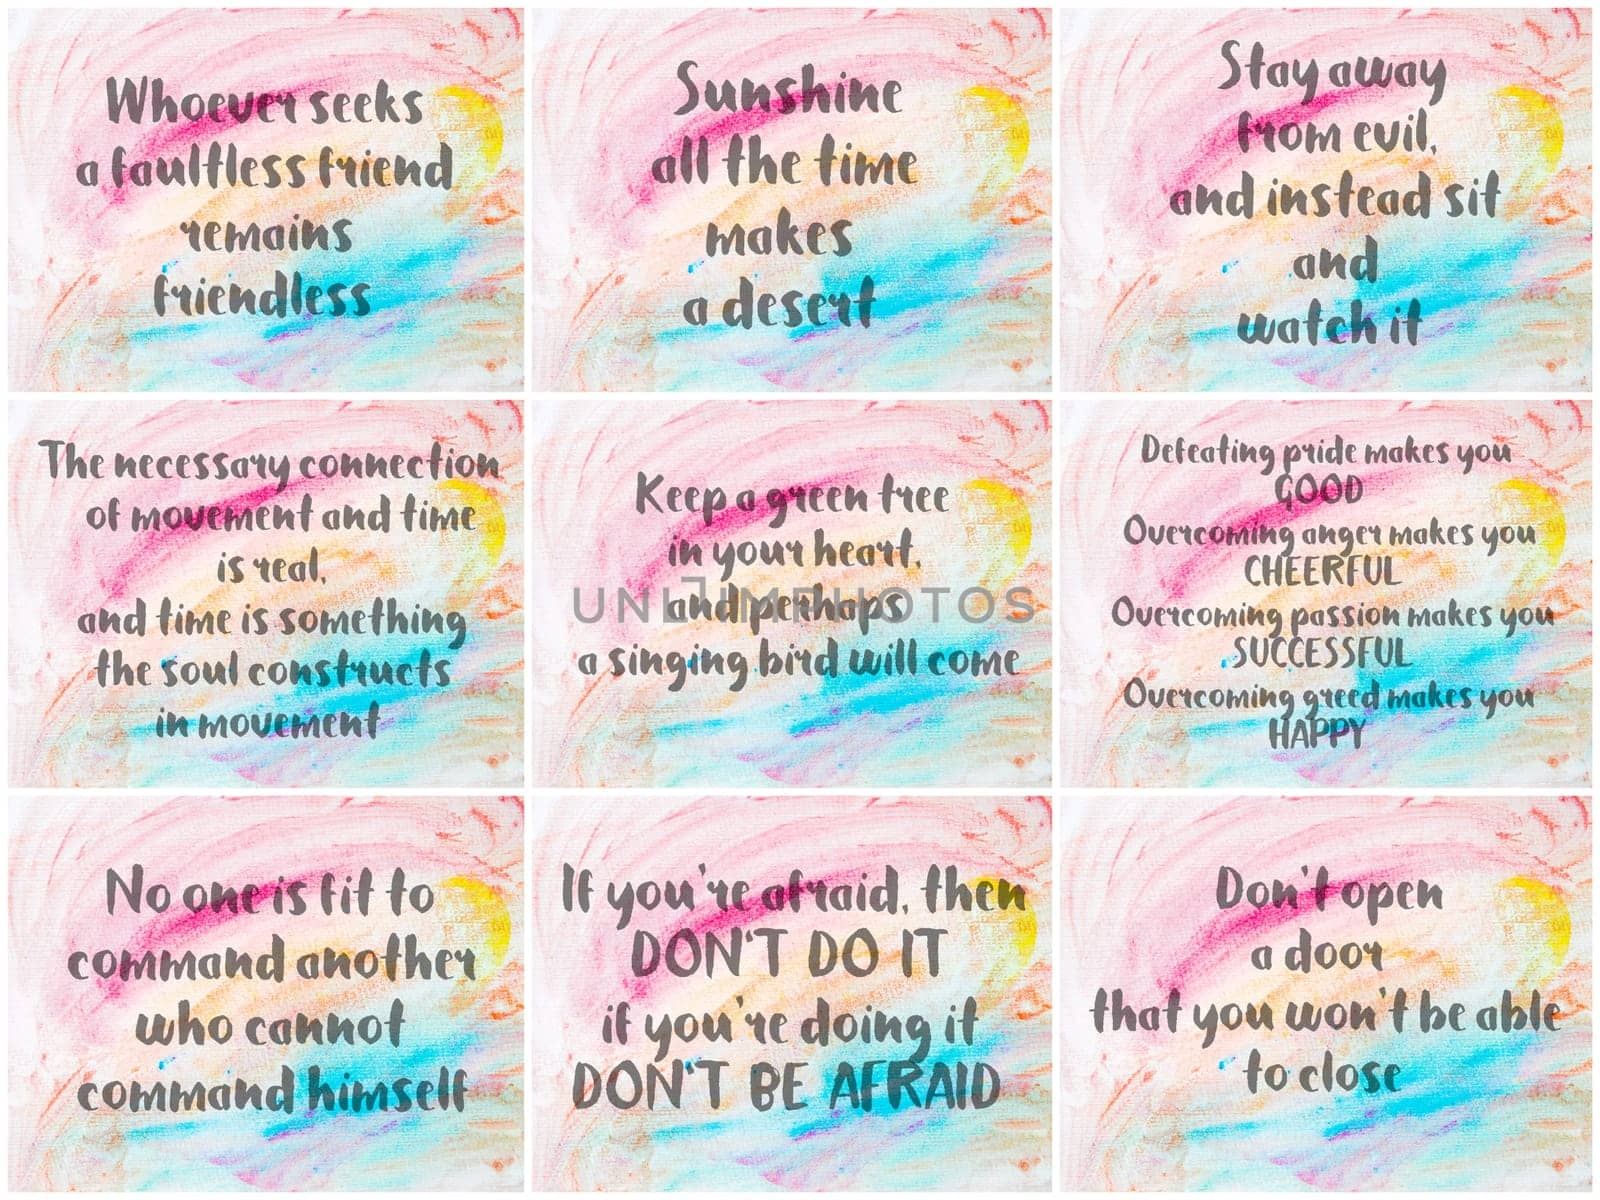 Whoever seeks
a faultless friend
remains
friendless
Sunshine
all the time
makes
a desert
Stay away
from evil,
and instead sit
and
watch it
The necessary connection
of movement and time
is real,
and time is something
the soul constructs
in movement
Keep a green tree
in your heart,
and perhaps
a singing bird will come
UNLIMPHOTOS
Defeating pride makes you
GOOD
Overcoming anger makes you
CHEERFUL
Overcoming passion makes you
SUCCESSFUL
Overcoming greed makes you
HAPPY
No one is fit to
command another
who cannot
command himself
If you're afraid, then
DON'T DO IT
if you're doing it
DON'T BE AFRAID
Don't open
a door
that you won't be able
to close